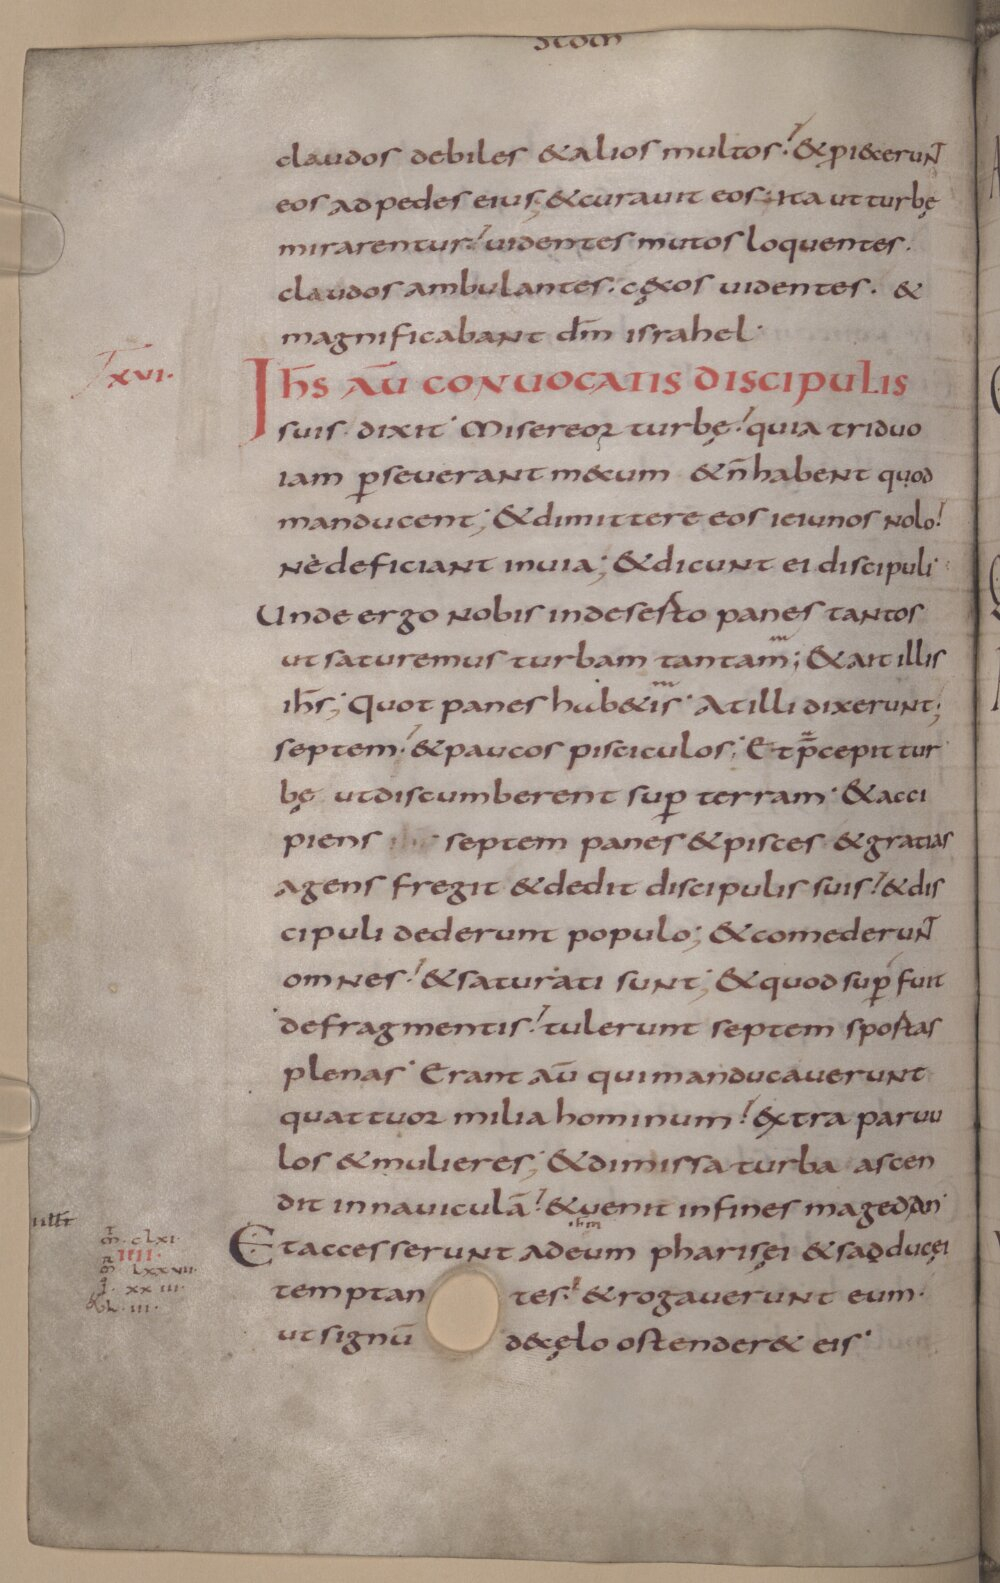 claudos debiles & alios multos. & pi&cerunt
eos ad pedes eius; & curauit eos. ita ut turbę
mirarentur. uidentes mutos loquentes.
claudos ambulantes. cęcos uidentes. &
magnificabant dm̄ israhel.
xvi.
Ih̄s aū conuocatis discipulis
suis dixit. Misereor turbę. quia triduo
iam ꝑseuerant m&cum & n̄ habent quod
manducent; & dimittere eos ieiunos nolo.
nè deficiant in uia; & dicunt ei discipuli.
Unde ergo nobis in deserto panes tantos
ut saturemus turbam tantam; & ait illis
ih̄s; Quot panes hab&is. At illi dixerunt;
septem. & paucos pisciculos; Et p̄cepit tur
bę ut discumberent suꝑ terram. & acci
piens septem panes & pisces & gratias
agens fregit & dedit discipulis suis. & dis
cipuli dederunt populo; & comederunt
omnes. & saturati sunt; & quod suꝑfuit
de fragmentis. tulerunt septem sportas
plenas. Erant aū qui manducauerunt
quattuor milia hominum. extra paruu
los & mulieres; & dimissa turba ascen
dit in nauiculā. & uenit in fines magedan.
Et accesserunt ad eum pharisęi & sadducęi
m. clxi.
iiii.
m lxxvii.
temptantes. & rogauerunt eum.
xxiii.
iii.
ut signū de cęlo ostender& eis.